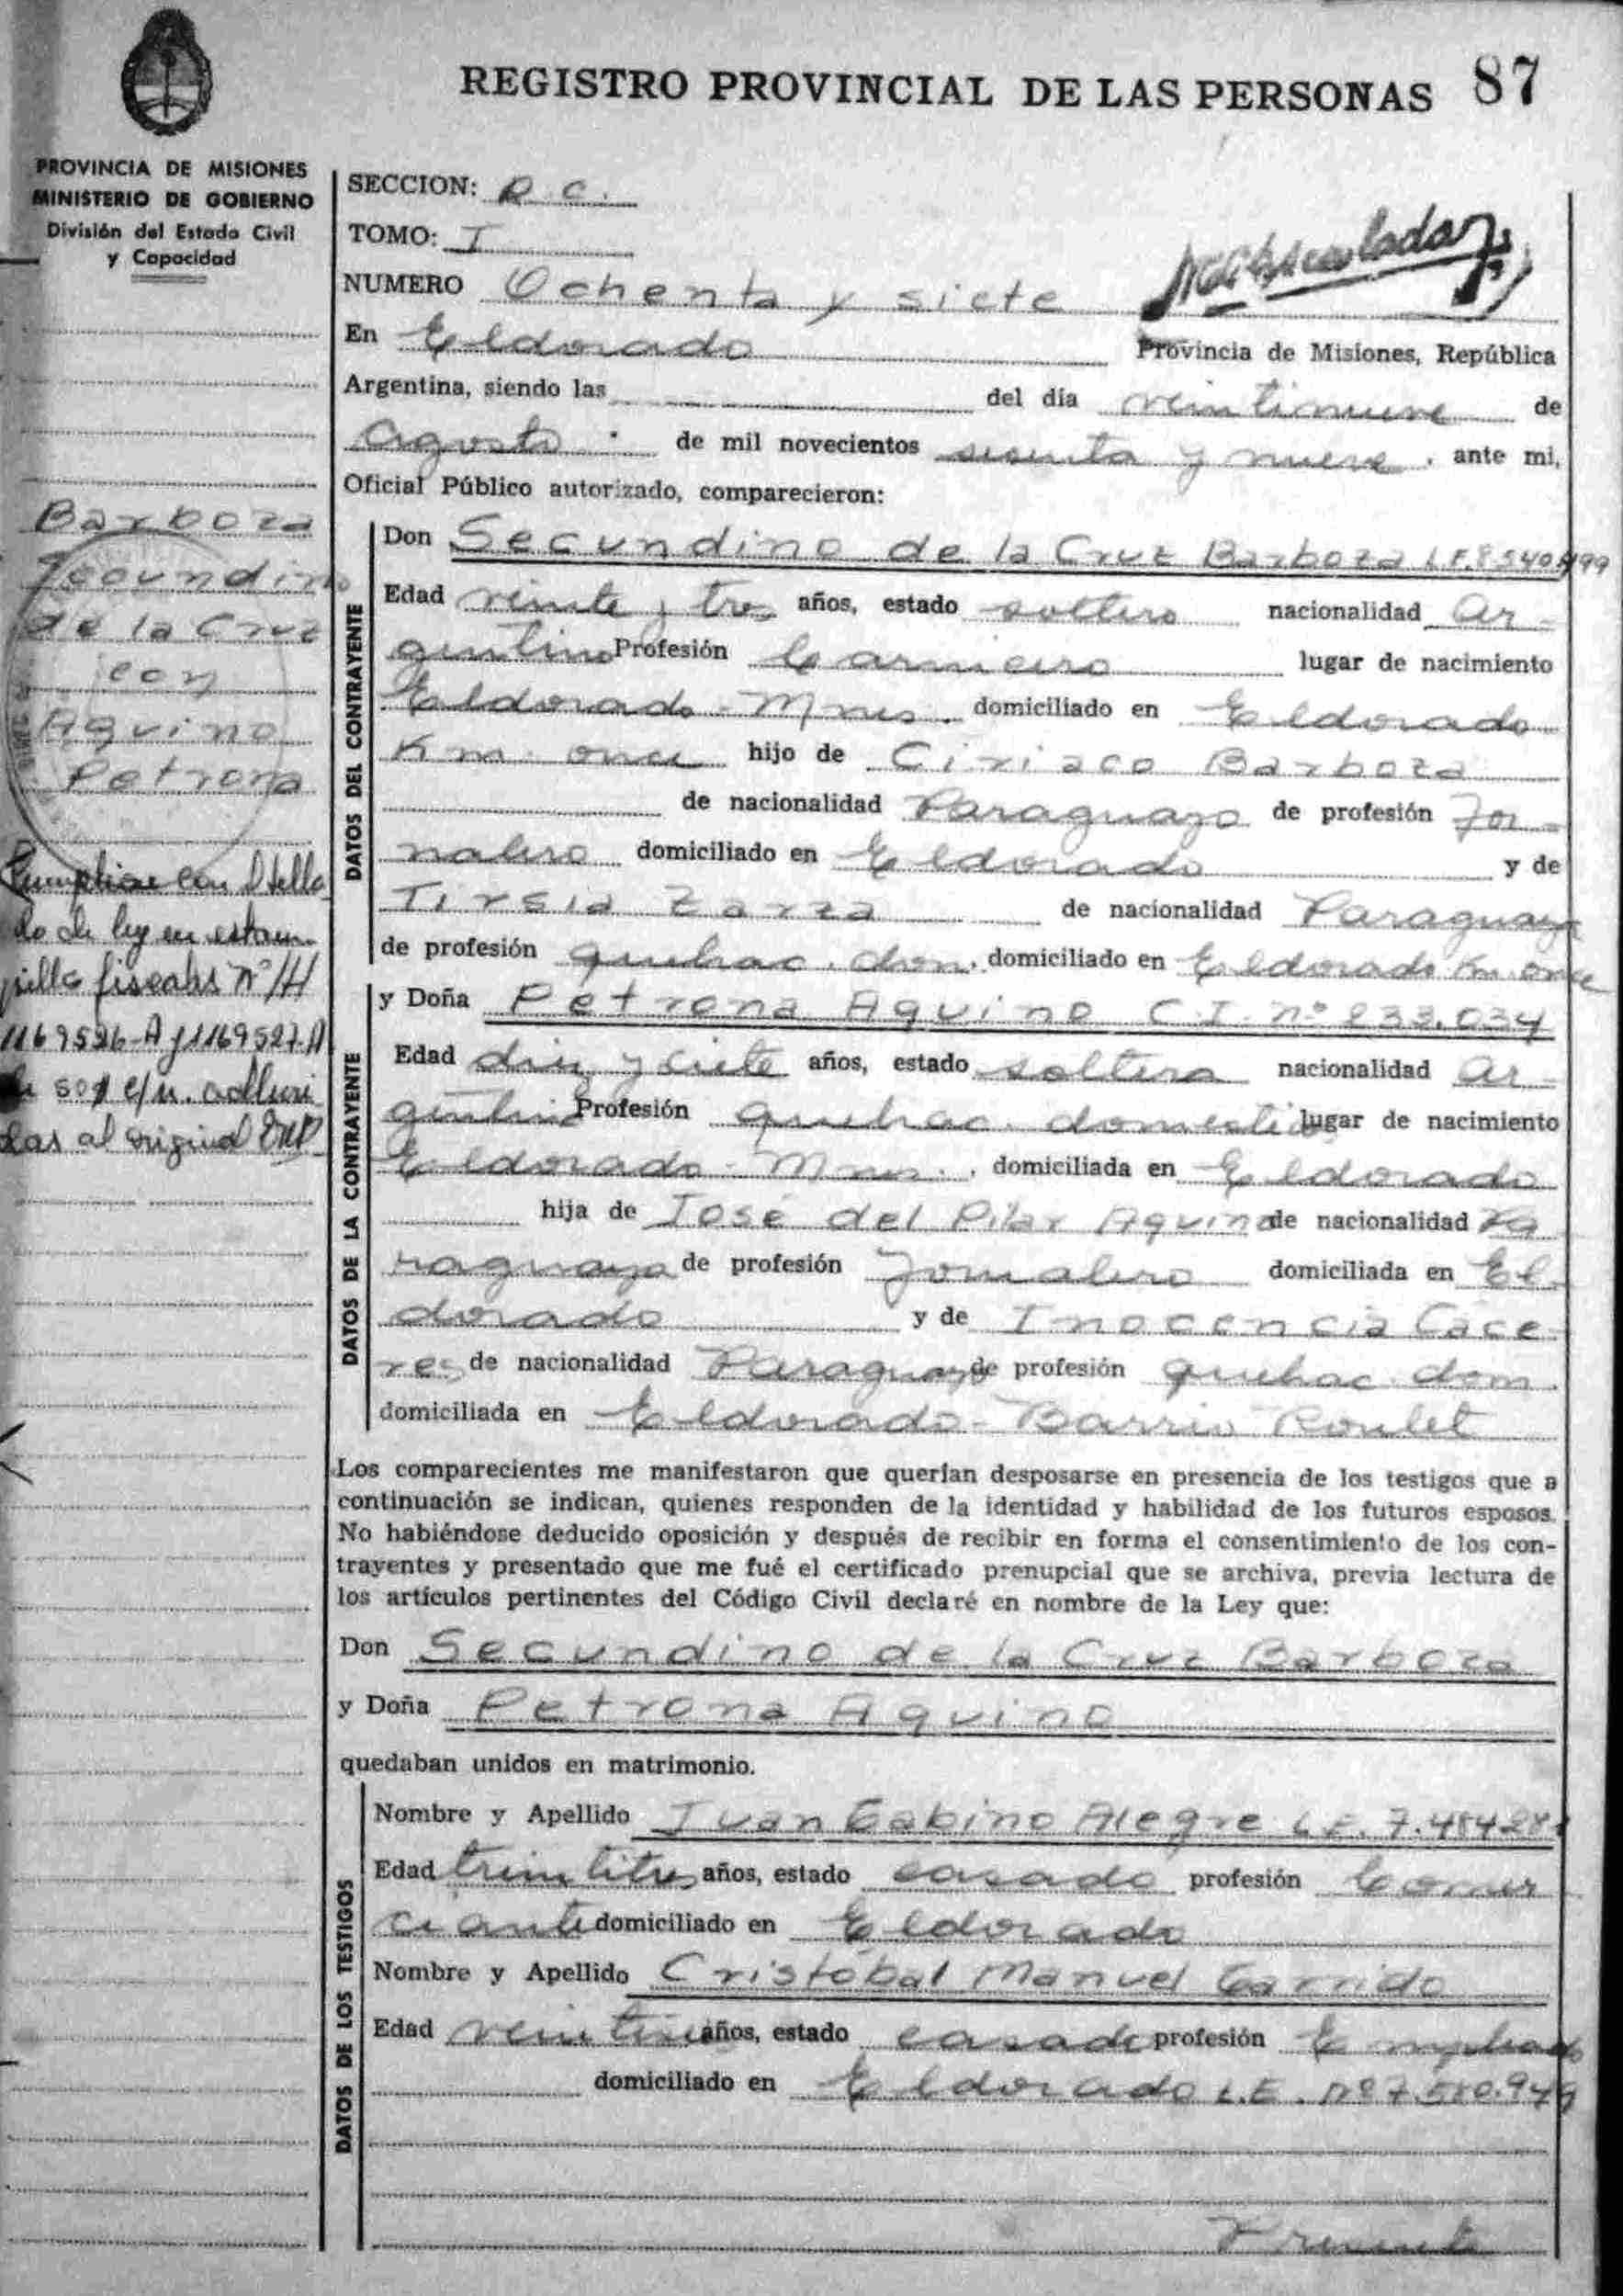 REGISTRO PROVINCIAL DE LAS PERSONAS 87
PROVINCIA DE MISIONES
MINISTERIO DE GOBIERNO
División del Estado Civil
y Capacidad
SECCION: R. C.
TOMO: I
NUMERO Ochenta y siete
En Eldorado Provincia de Misiones, República
Argentina, siendo las del día veintinueve de
Agosto de mil novecientos sesenta y nueve, ante mi,
Oficial Público autorizado, comparecieron:
Barboza
Secundino
de la Cruz
con
Aquino
Petrona
Cumpliose con Sella
do de ley en estam-
pilla fiscales Nº/H
1169526-A y 1169527-A
de 50$ c/u. adheri
das al original
DATOS DEL CONTRAYENTE
Don Secundino de la Cruz Barboza L.E. 8.540.499
Edad veinte y tres años, estado soltero nacionalidad Ar-
gentino Profesión Carnicero lugar de nacimiento
Eldorado - Mnes. domiciliado en Eldorado
Km. once hijo de Ciriaco Barboza
de nacionalidad Paraguayo de profesión Jor-
nalero domiciliado en Eldorado y de
Tirsia Zarza de nacionalidad Paraguaya
de profesión quehac. dom. domiciliado en Eldorado Km once
DATOS DE LA CONTRAYENTE
y Doña Petrona Aquino C.I. nº 233.034
Edad diez y siete años, estado soltera nacionalidad Ar-
gentina Profesión quehac. domestico lugar de nacimiento
Eldorado - Mnes., domiciliada en Eldorado
hija de José del Pilar Aquino de nacionalidad Pa
raguaya de profesión Jornalero domiciliada en El-
dorado y de Inocencia Cáce-
res de nacionalidad Paraguaya de profesión quehac. dom.
domiciliada en Eldorado - Barrio Roulet
Los comparecientes me manifestaron que querían desposarse en presencia de los testigos que a
continuación se indican, quienes responden de la identidad y habilidad de los futuros esposos.
No habiéndose deducido oposición y después de recibir en forma el consentimiento de los con-
trayentes y presentado que me fué el certificado prenupcial que se archiva, previa lectura de
los artículos pertinentes del Código Civil declaré en nombre de la Ley que:
Don Secundino de la Cruz Barboza
y Doña Petrona Aquino
quedaban unidos en matrimonio.
DATOS DE LOS TESTIGOS
Nombre y Apellido Juan Gabino Alegre L.E. 7.484.281
Edad treintitres años, estado casado profesión Comer
ciante domiciliado en Eldorado
Nombre y Apellido Cristóbal Manuel Garrido
Edad años, estado casado profesión Empleado
domiciliado en Eldorado L.E. nº 7.580.949